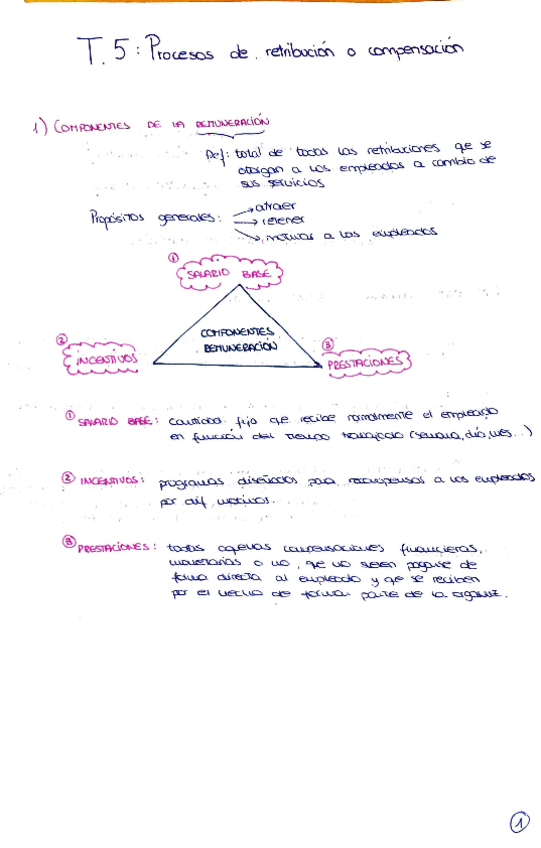 T.5: Procesos de retribución o compensación
1) COMPONENTES DE LA REMUNERACIÓN
Def: total de todas las retribuciones que se
otorgan a los empleados a cambio de
sus servicios
Propósitos generales: → atraer
→ retener
→ motivar a los empleados
①
SALARIO BASE
COMPONENTES
REMUNERACIÓN
②
INCENTIVOS
③
PRESTACIONES
① SALARIO BASE: cantidad fija que recibe normalmente el empleado
en función del tiempo trabajado (semana, día, mes...)
② INCENTIVOS: programas diseñados para recompensar a los empleados
por dif. motivos.
③ PRESTACIONES: todas aquellas compensaciones financieras,
monetarias o no, que no suelen pagarse de
forma directa al empleado y que se reciben
por el hecho de formar parte de la organiz.
①